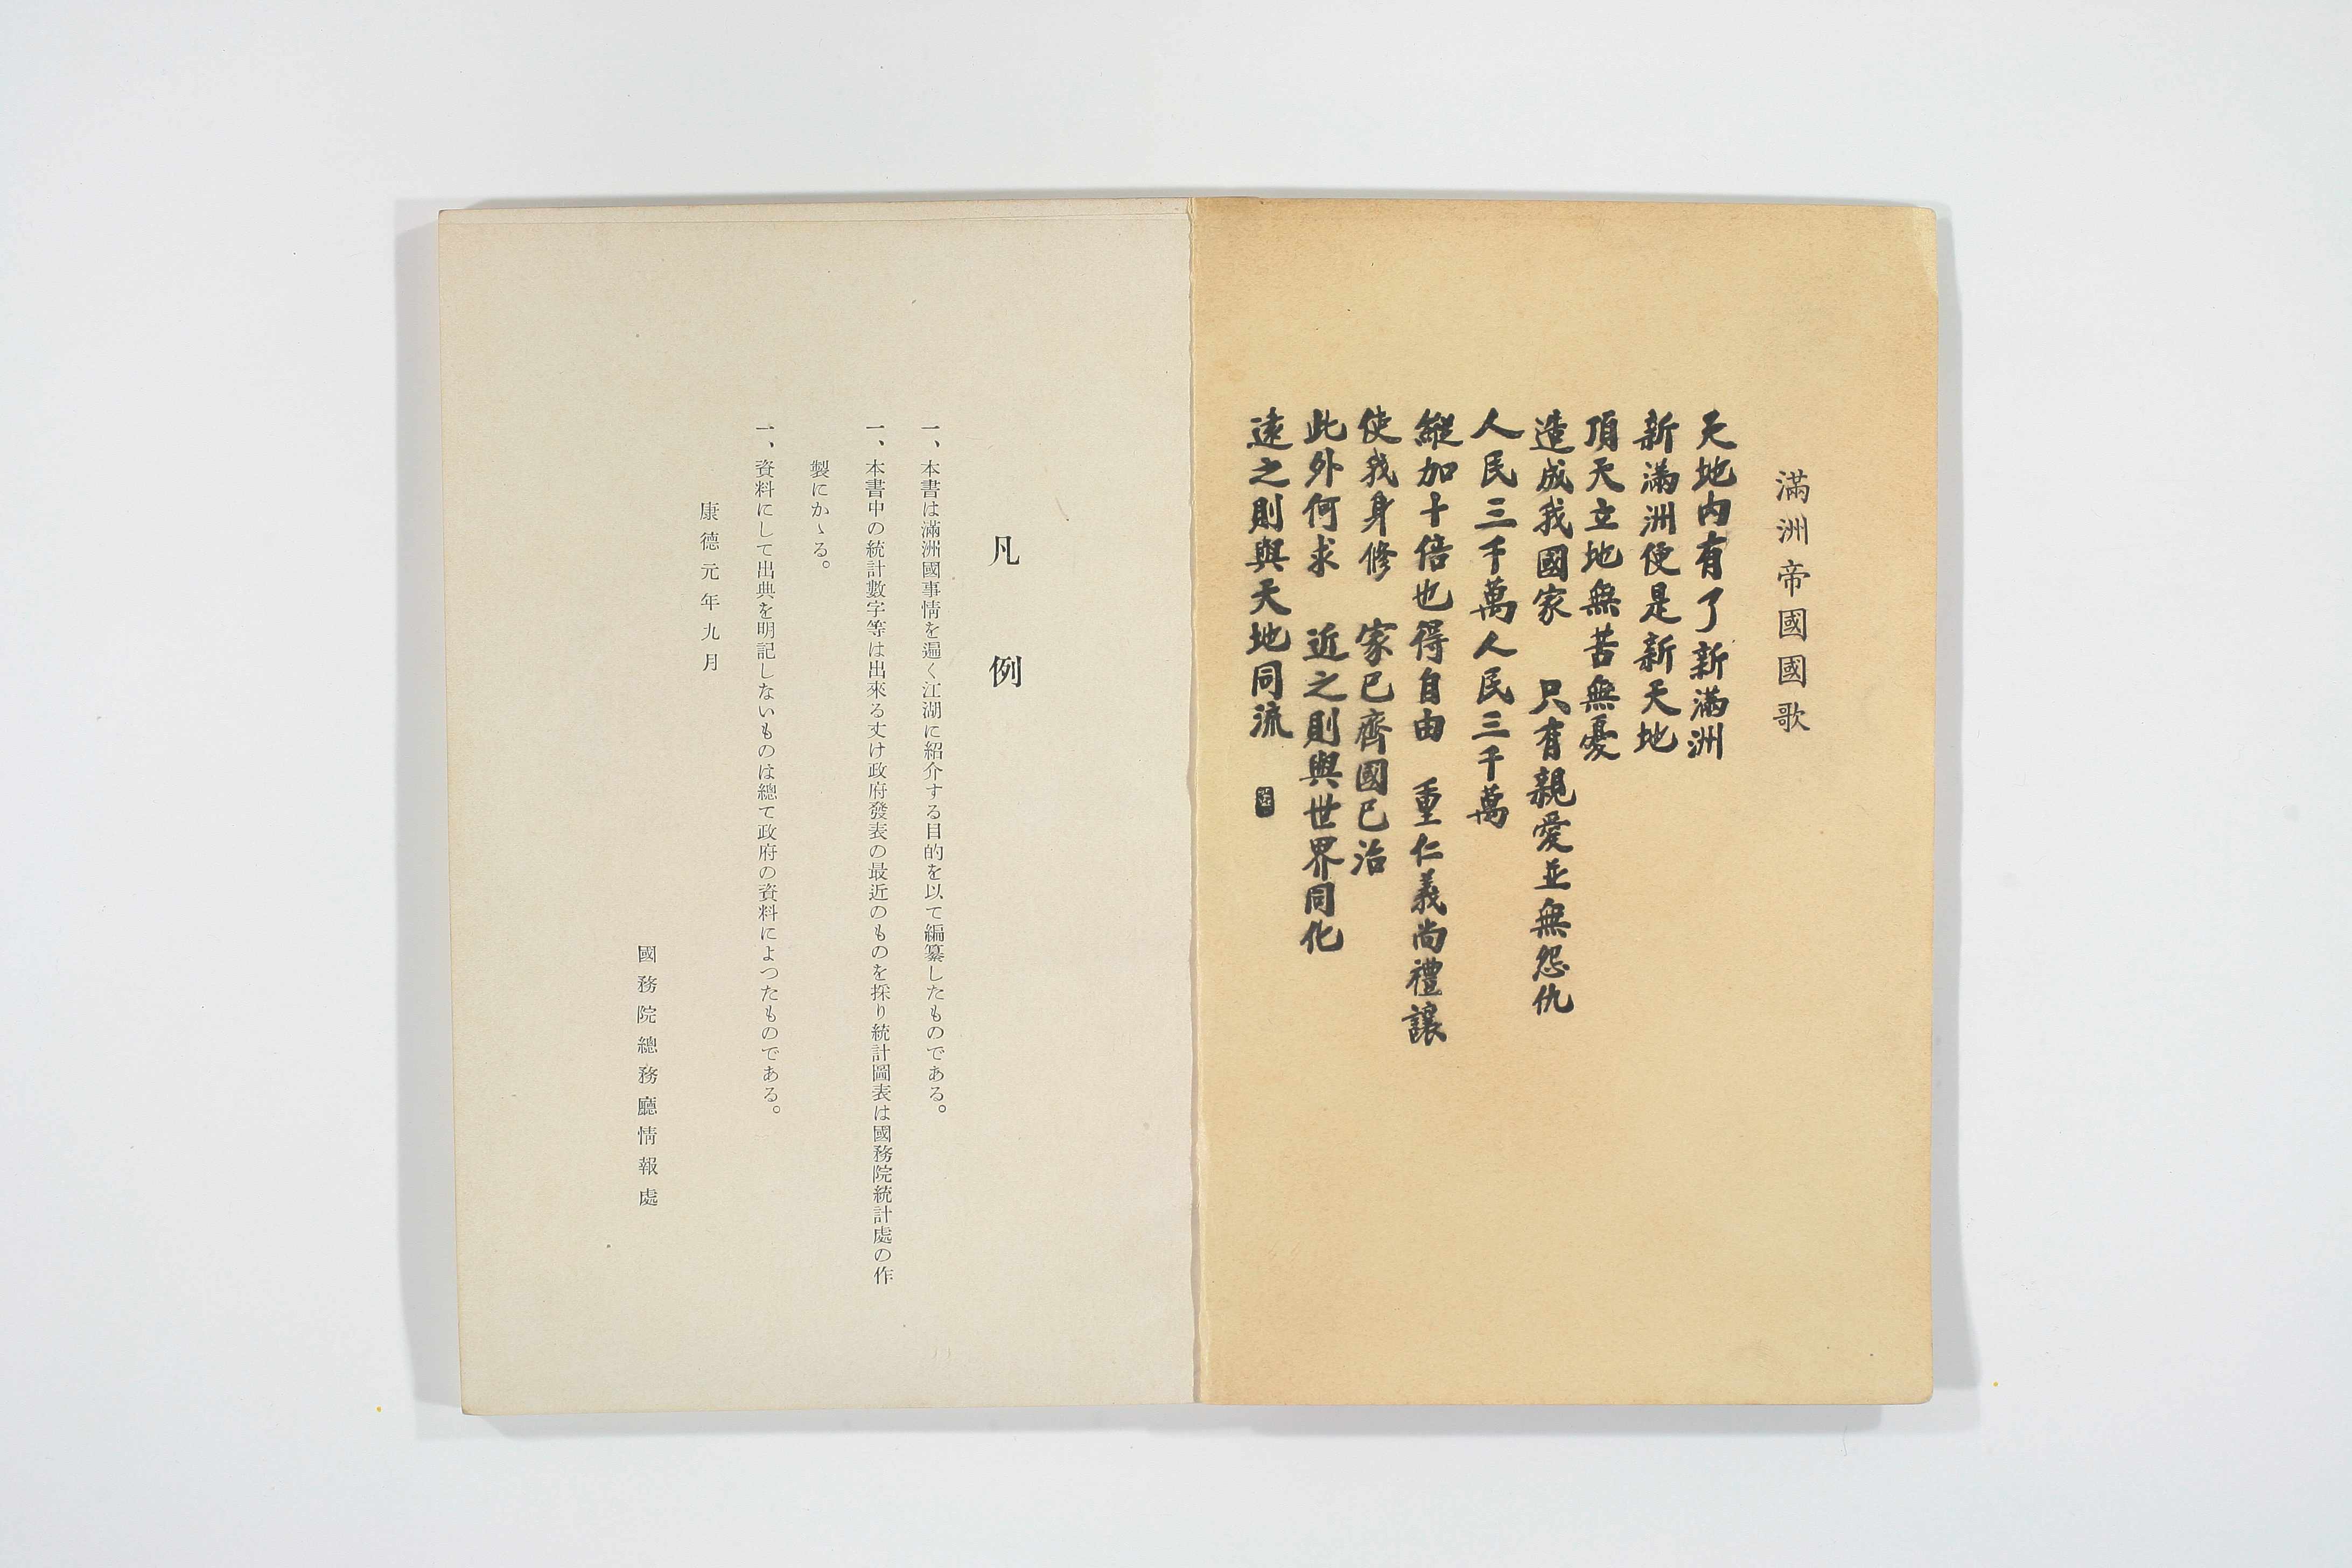 滿洲帝國國歌
天地內有了新滿洲
新滿洲便是新天地
頂天立地無苦無憂
造成我國家　只有親愛並無怨仇
人民三千萬人民三千萬
縱加十倍也得自由　重仁義尚禮讓
使我身修　家已齊國已治
此外何求　近之則與世界同化
遠之則與天地同流
凡例
一、本書は滿洲國事情を遍く江湖に紹介する目的を以て編纂したものである。
一、本書中の統計數字等は出來る丈け政府發表の最近のものを採り統計圖表は國務院統計處の作
製にかゝる。
一、資料にして出典を明記しないものは總て政府の資料によつたものである。
康德元年九月
國務院總務廳情報處